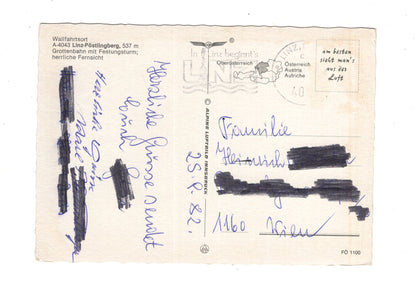 Wallfahrtsort
A-4043 Linz-Pöstlingberg, 537 m
Grottenbahn mit Festungsturm;
herrliche Fernsicht
In Linz beginnt's
Oberösterreich
Österreich
Austria
Autriche
LINZ
40
am besten
sieht man's
aus der
Luft
Herzliche Grüsse sendet
Euch
25.9.82.
Herzliche
ALPINE LUFTBILD INNSBRUCK
Familie
Heinrich
1160 Wien
FO 1100